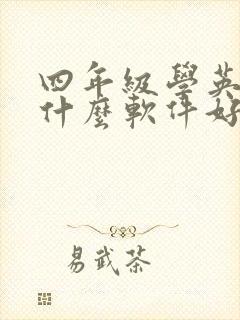 四年級學英
什麼軟件好
易武茶